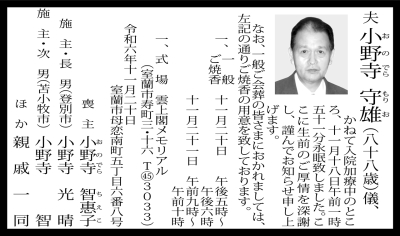 夫 小野寺 守雄(八十八歳)儀、
おのでら もりお
かねて入院加療中のとこ
ろ、十一月十八日午前一時
五十一分永眠致しました。こ
こに生前のご厚情を深謝
し、謹んでお知らせ申し上
げます。
なお、一般ご会葬の皆さまにおかれましては、
左記の通りご焼香の用意を致しております。
一、一般 十一月二十日 午後五時〜
ご焼香 午後六時
十一月二十一日 午前九時〜
午前十時
一、式 場 雲上閣メモリアル
(室蘭市寿町三・十六 T㊺3033)
令和六年十一月二十日
室蘭市母恋南町五丁目六番八号
喪主 小野寺 智惠子
おのでら ちえこ
施主・長 男(登別市) 小野寺 光晴
施主・次 男(苫小牧市) 小野寺 智
ほか 親戚一同